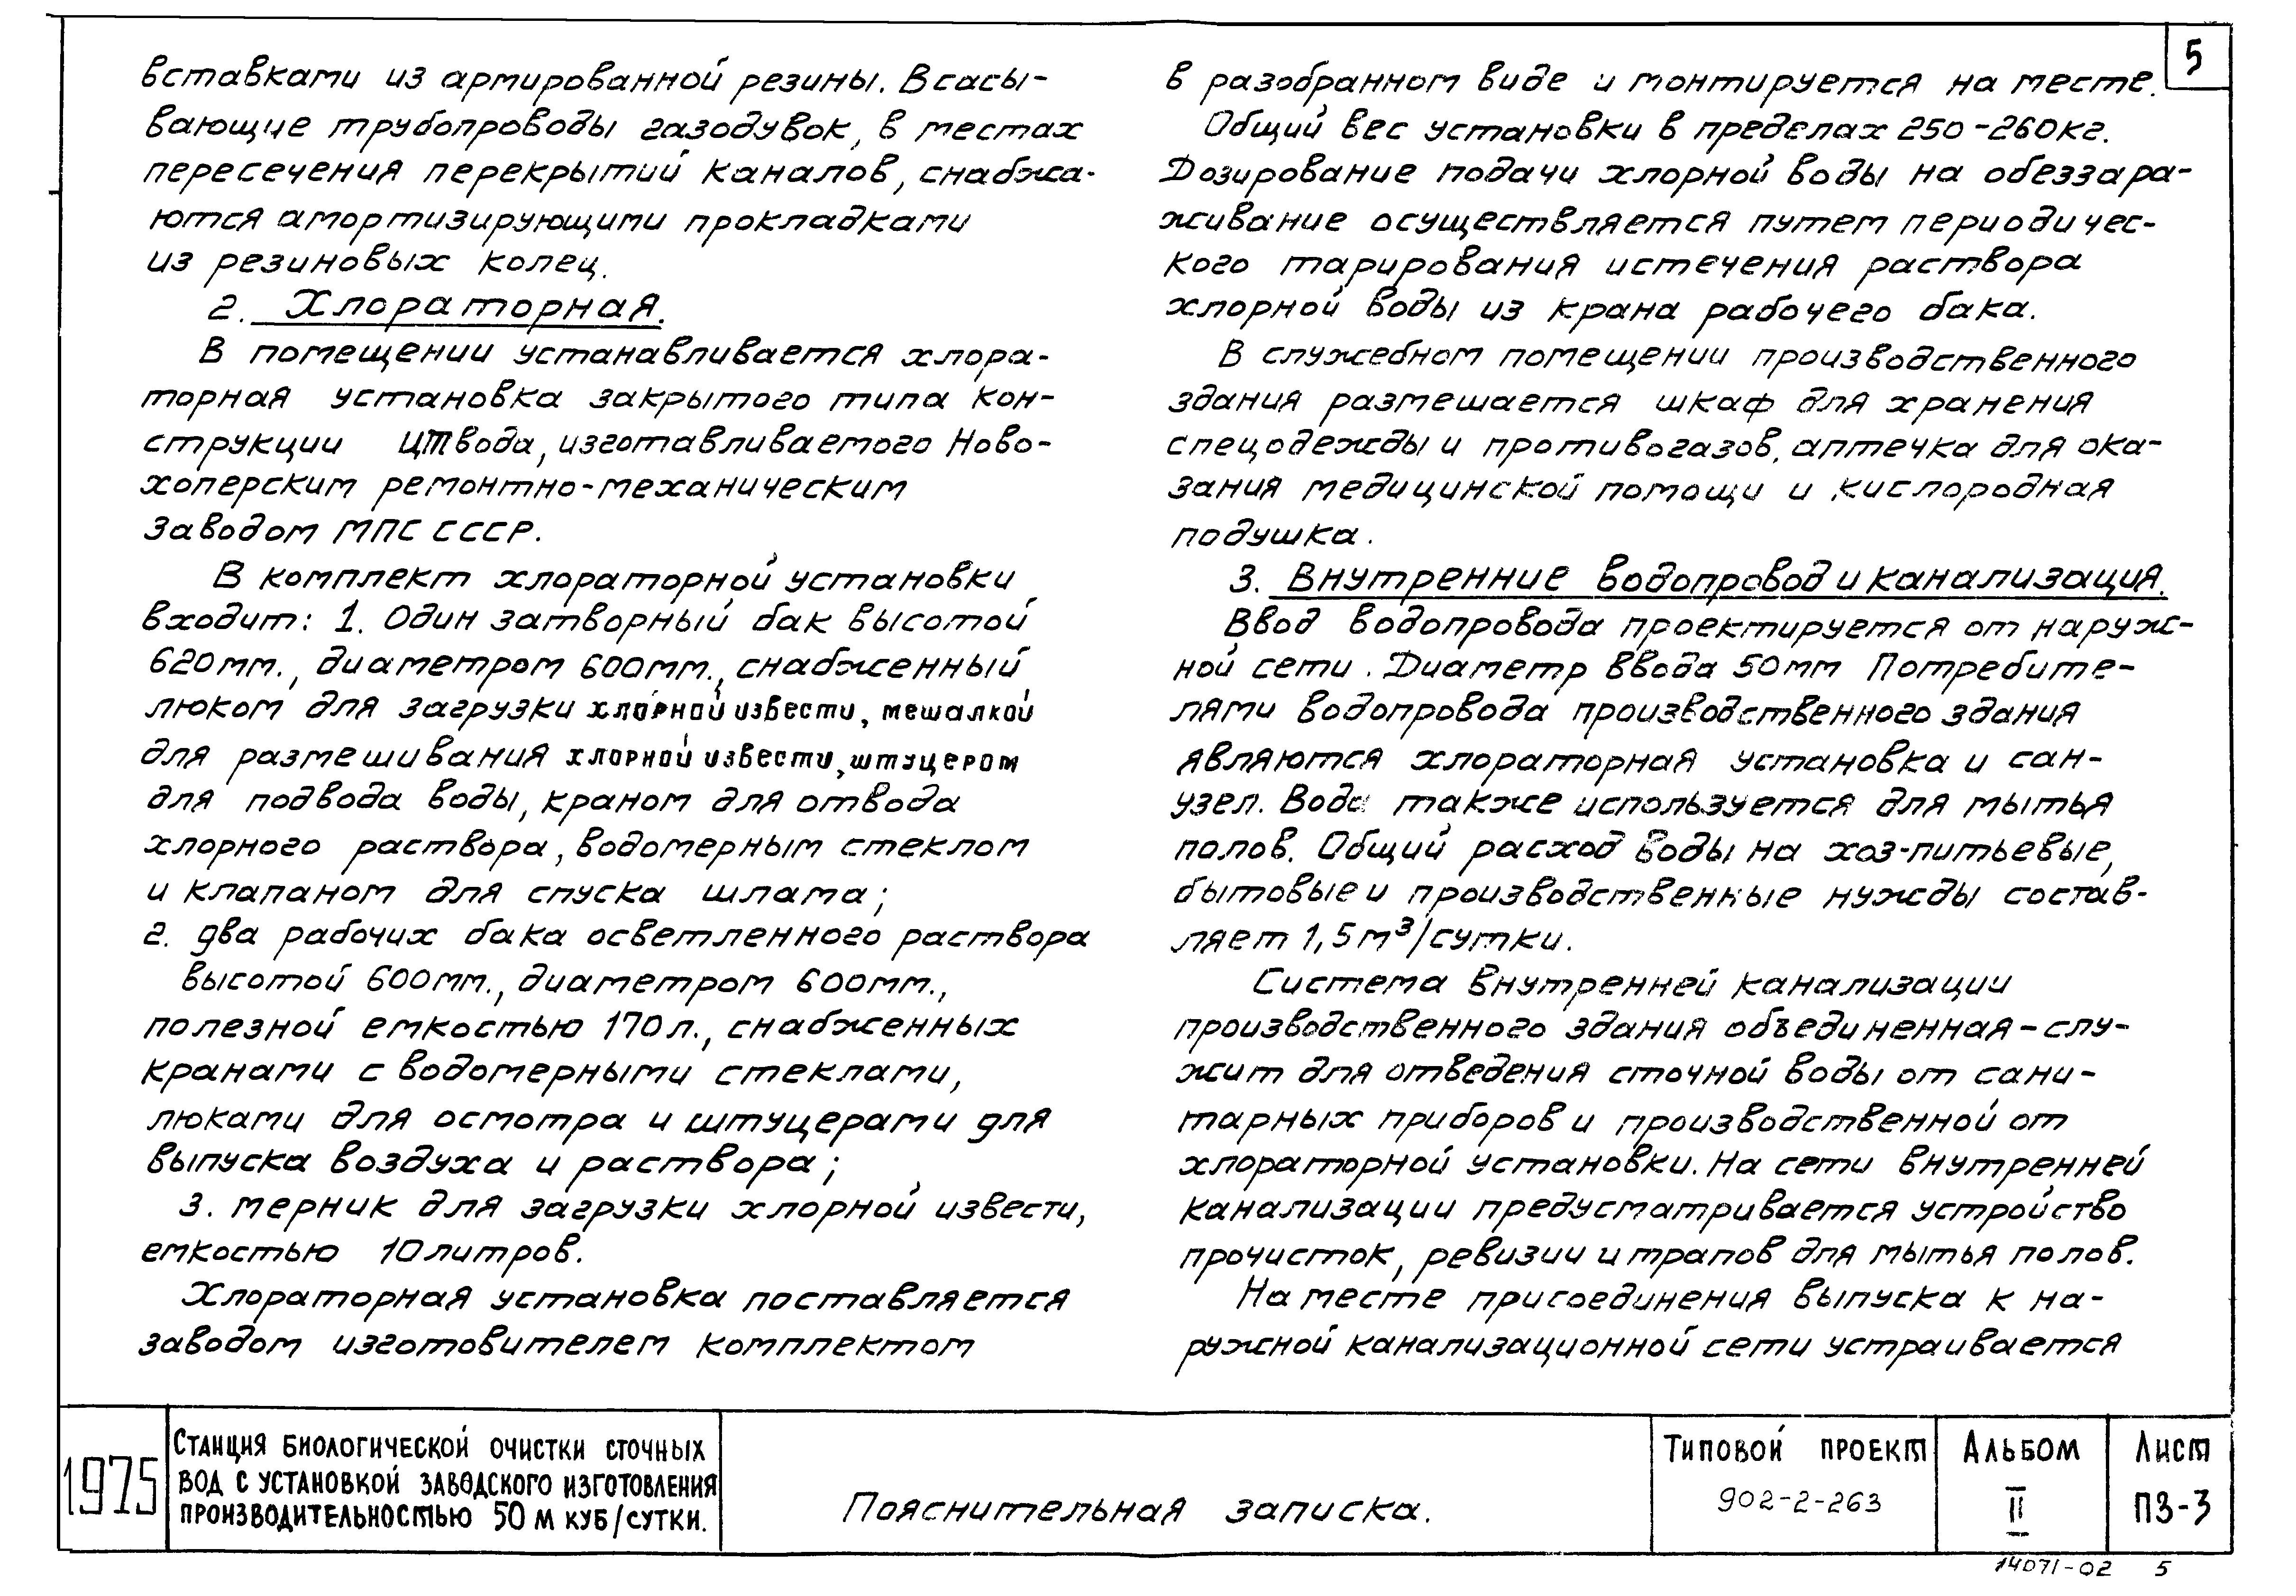 5
вставками из армированной резины. Всасы-
вающие трубопроводы газодувок, в местах
пересечения перекрытий каналов, снабжа-
ются амортизирующими прокладками
из резиновых колец.
2. Хлораторная.
В помещении устанавливается хлора-
торная установка закрытого типа кон-
струкции ЦТВода, изготавливаемого Ново-
хоперским ремонтно-механическим
заводом МПС СССР.
В комплект хлораторной установки
входит: 1. Один затворный бак высотой
620мм., диаметром 600мм., снабженный
люком для загрузки хлорной извести, мешалкой
для размешивания хлорной извести, штуцером
для подвода воды, краном для отвода
хлорного раствора, водомерным стеклом
и клапаном для спуска шлама;
2. два рабочих бака осветленного раствора
высотой 600мм., диаметром 600мм.,
полезной емкостью 170л., снабженных
кранами с водомерными стеклами,
люками для осмотра и штуцерами для
выпуска воздуха и раствора;
3. мерник для загрузки хлорной извести,
емкостью 10литров.
Хлораторная установка поставляется
заводом изготовителем комплектом
в разобранном виде и монтируется на месте.
Общий вес установки в пределах 250-260кг.
Дозирование подачи хлорной воды на обеззара-
живание осуществляется путем периодичес-
кого тарирования истечения раствора
хлорной воды из крана рабочего бака.
В служебном помещении производственного
здания размешается шкаф для хранения
спецодежды и противогазов, аптечка для ока-
зания медицинской помощи и кислородная
подушка.
3. Внутренние водопровод и канализация.
Ввод водопровода проектируется от наруж-
ной сети. Диаметр ввода 50мм Потребите-
лями водопровода производственного здания
являются хлораторная установка и сан-
узел. Вода также используется для мытья
полов. Общий расход воды на хоз-питьевые,
бытовые и производственные нужды состав-
ляет 1,5м³/сутки.
Система внутренней канализации
производственного здания объединенная-слу-
жит для отведения сточной воды от сани-
тарных приборов и производственной от
хлораторной установки. На сети внутренней
канализации предусматривается устройство
прочисток, ревизии и трапов для мытья полов.
На месте присоединения выпуска к на-
ружной канализационной сети устраивается
1975
Станция биологической очистки сточных
вод с установкой заводского изготовления
производительностью 50 м куб/сутки.
Пояснительная записка.
Типовой проект
902-2-263
Альбом
II
Лист
ПЗ-3
14071-02 5